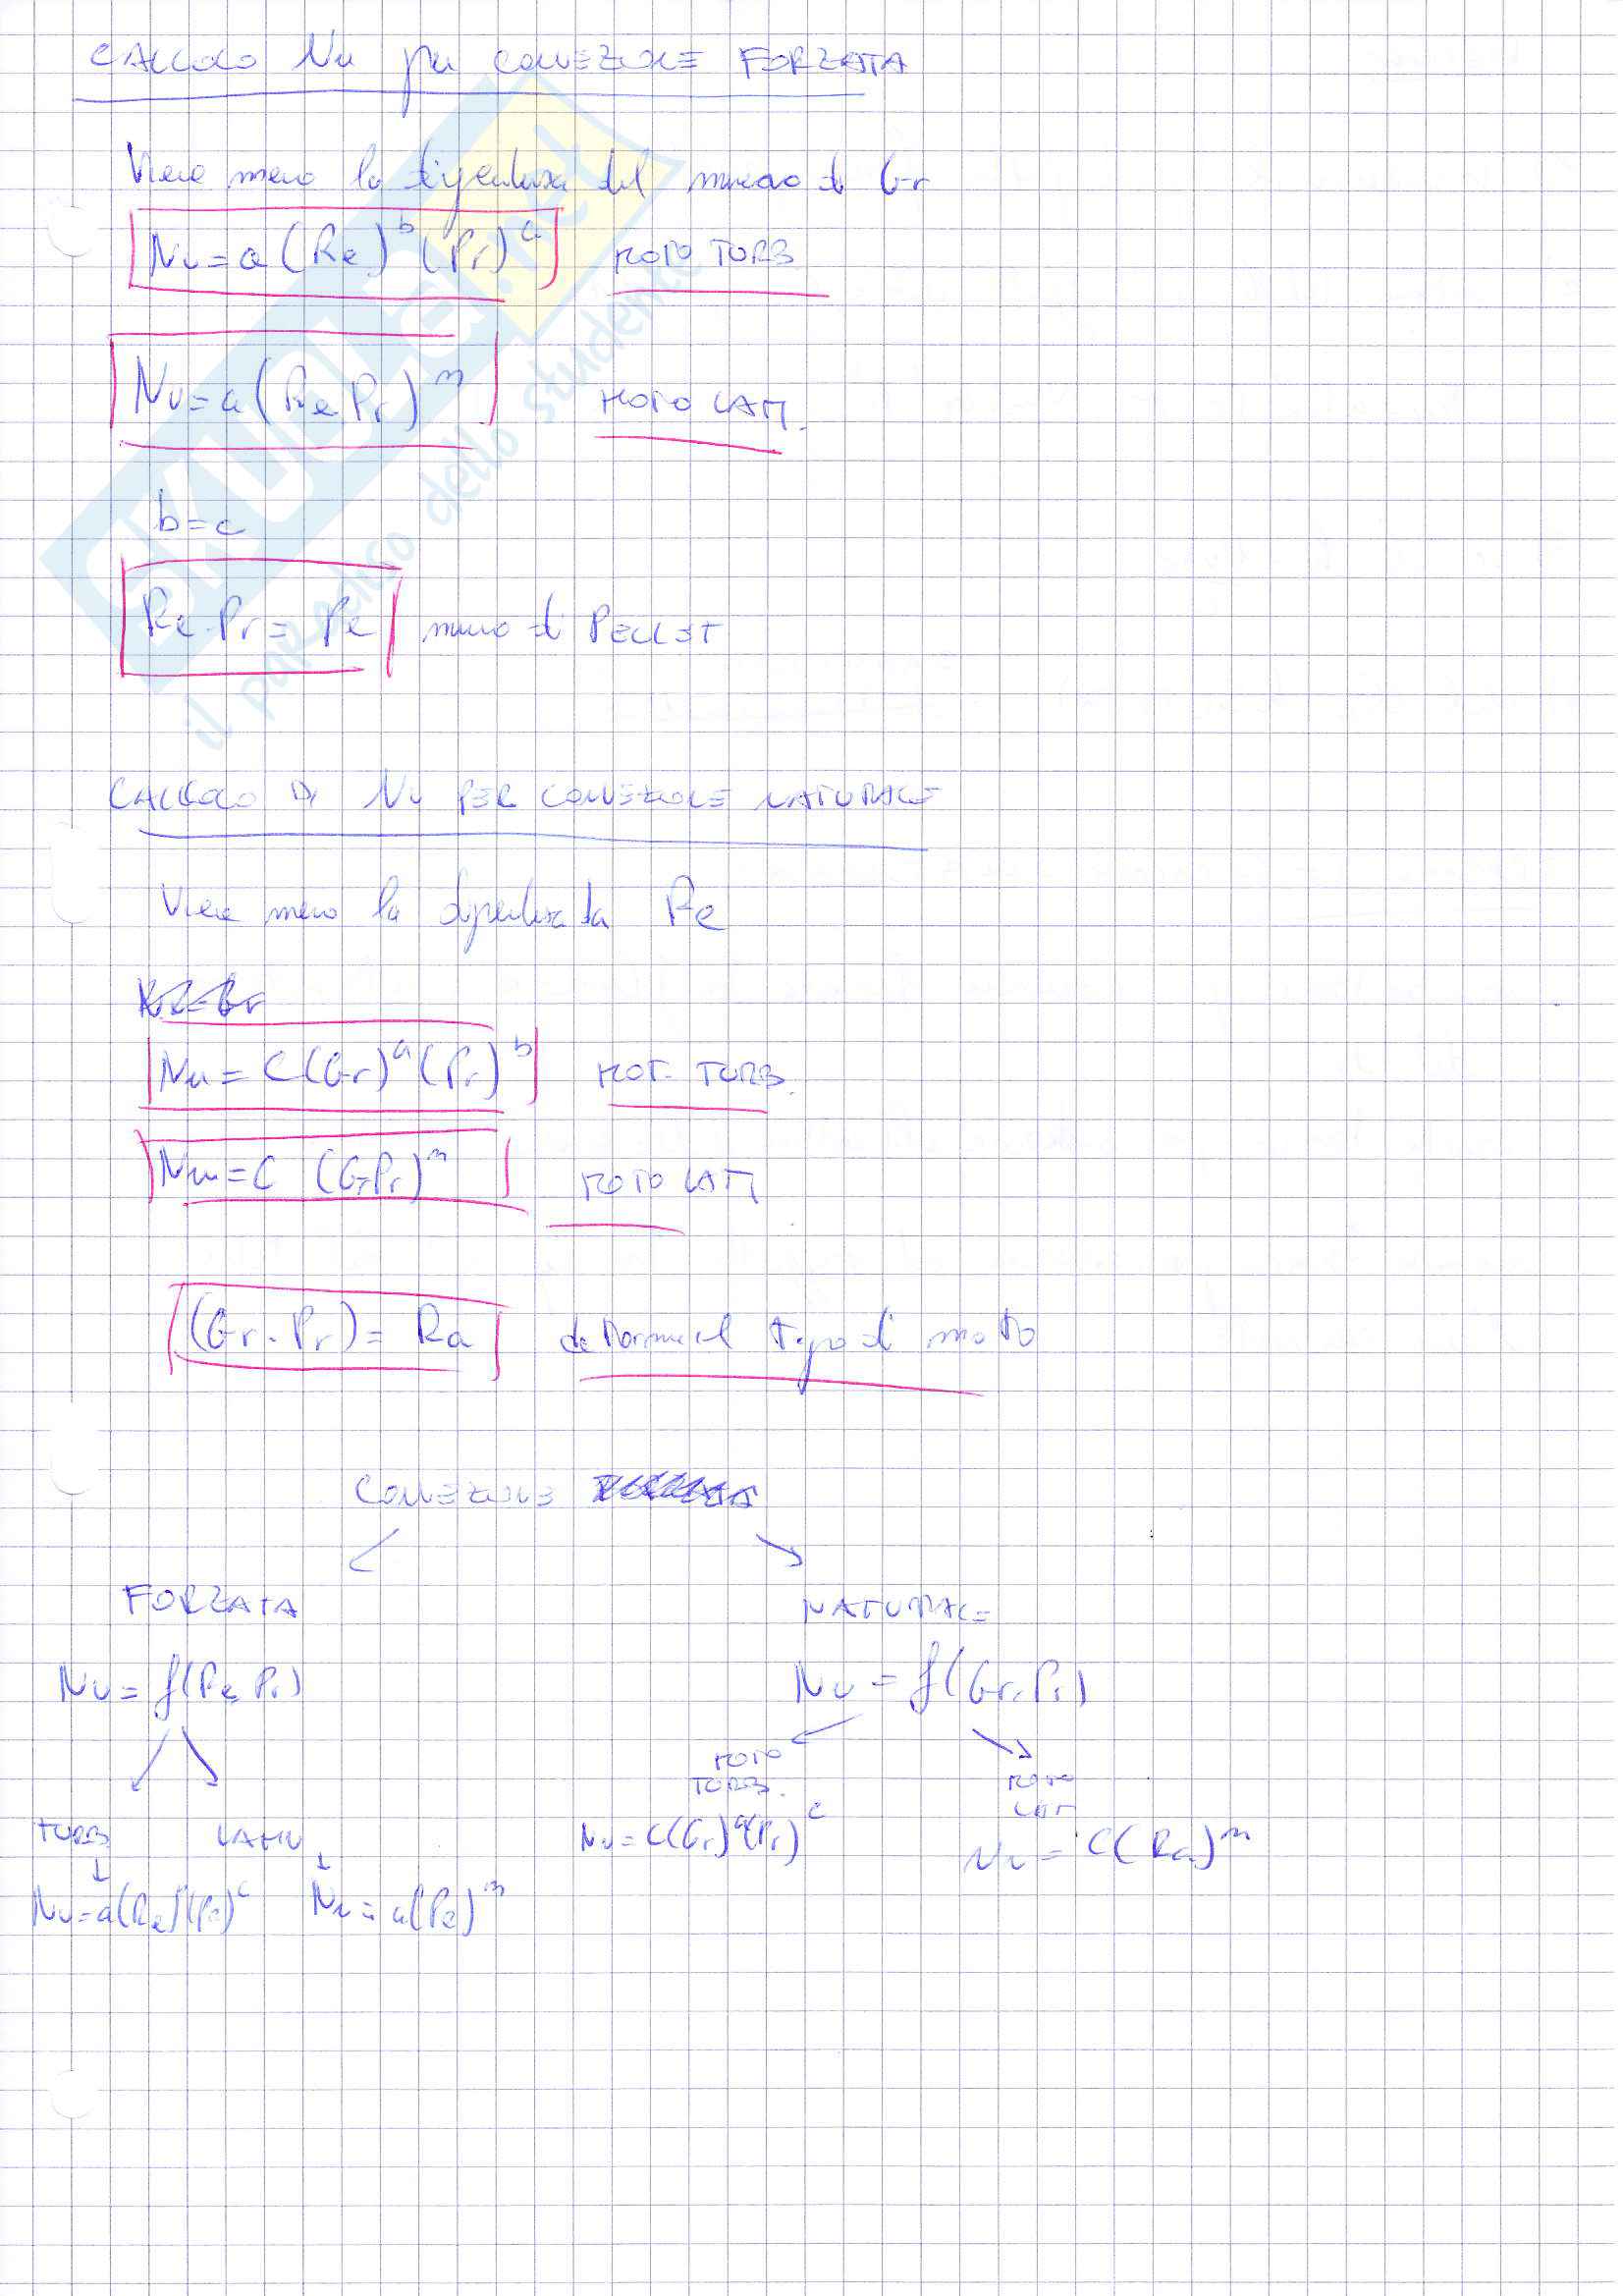 CALCOLO Nu per CONVEZIONE FORZATA
Viene meno la dipendenza del numero di Gr
Nu = a (Re)^b (Pr)^c MOTO TURB
Nu = a (Re Pr)^m MOTO LAM.
b = c
Re · Pr = Pe numero di PECLET
CALCOLO DI Nu PER CONVEZIONE NATURALE
Viene meno la dipendenza da Re
Nu = C (Gr)^a (Pr)^b MOT. TURB.
Nu = C (GrPr)^m MOTO LAM
(Gr · Pr) = Ra determina il tipo di moto
CONVEZIONE
FORZATA NATURALE
Nu = f(Re, Pr) Nu = f(Gr, Pr)
MOTO TURB. MOTO LAM
TURB LAMIN
Nu = C(Gr)^a(Pr)^c Nu = C(Ra)^m
Nu = a(Pe)^m
skuola.net
il paradiso dello studente